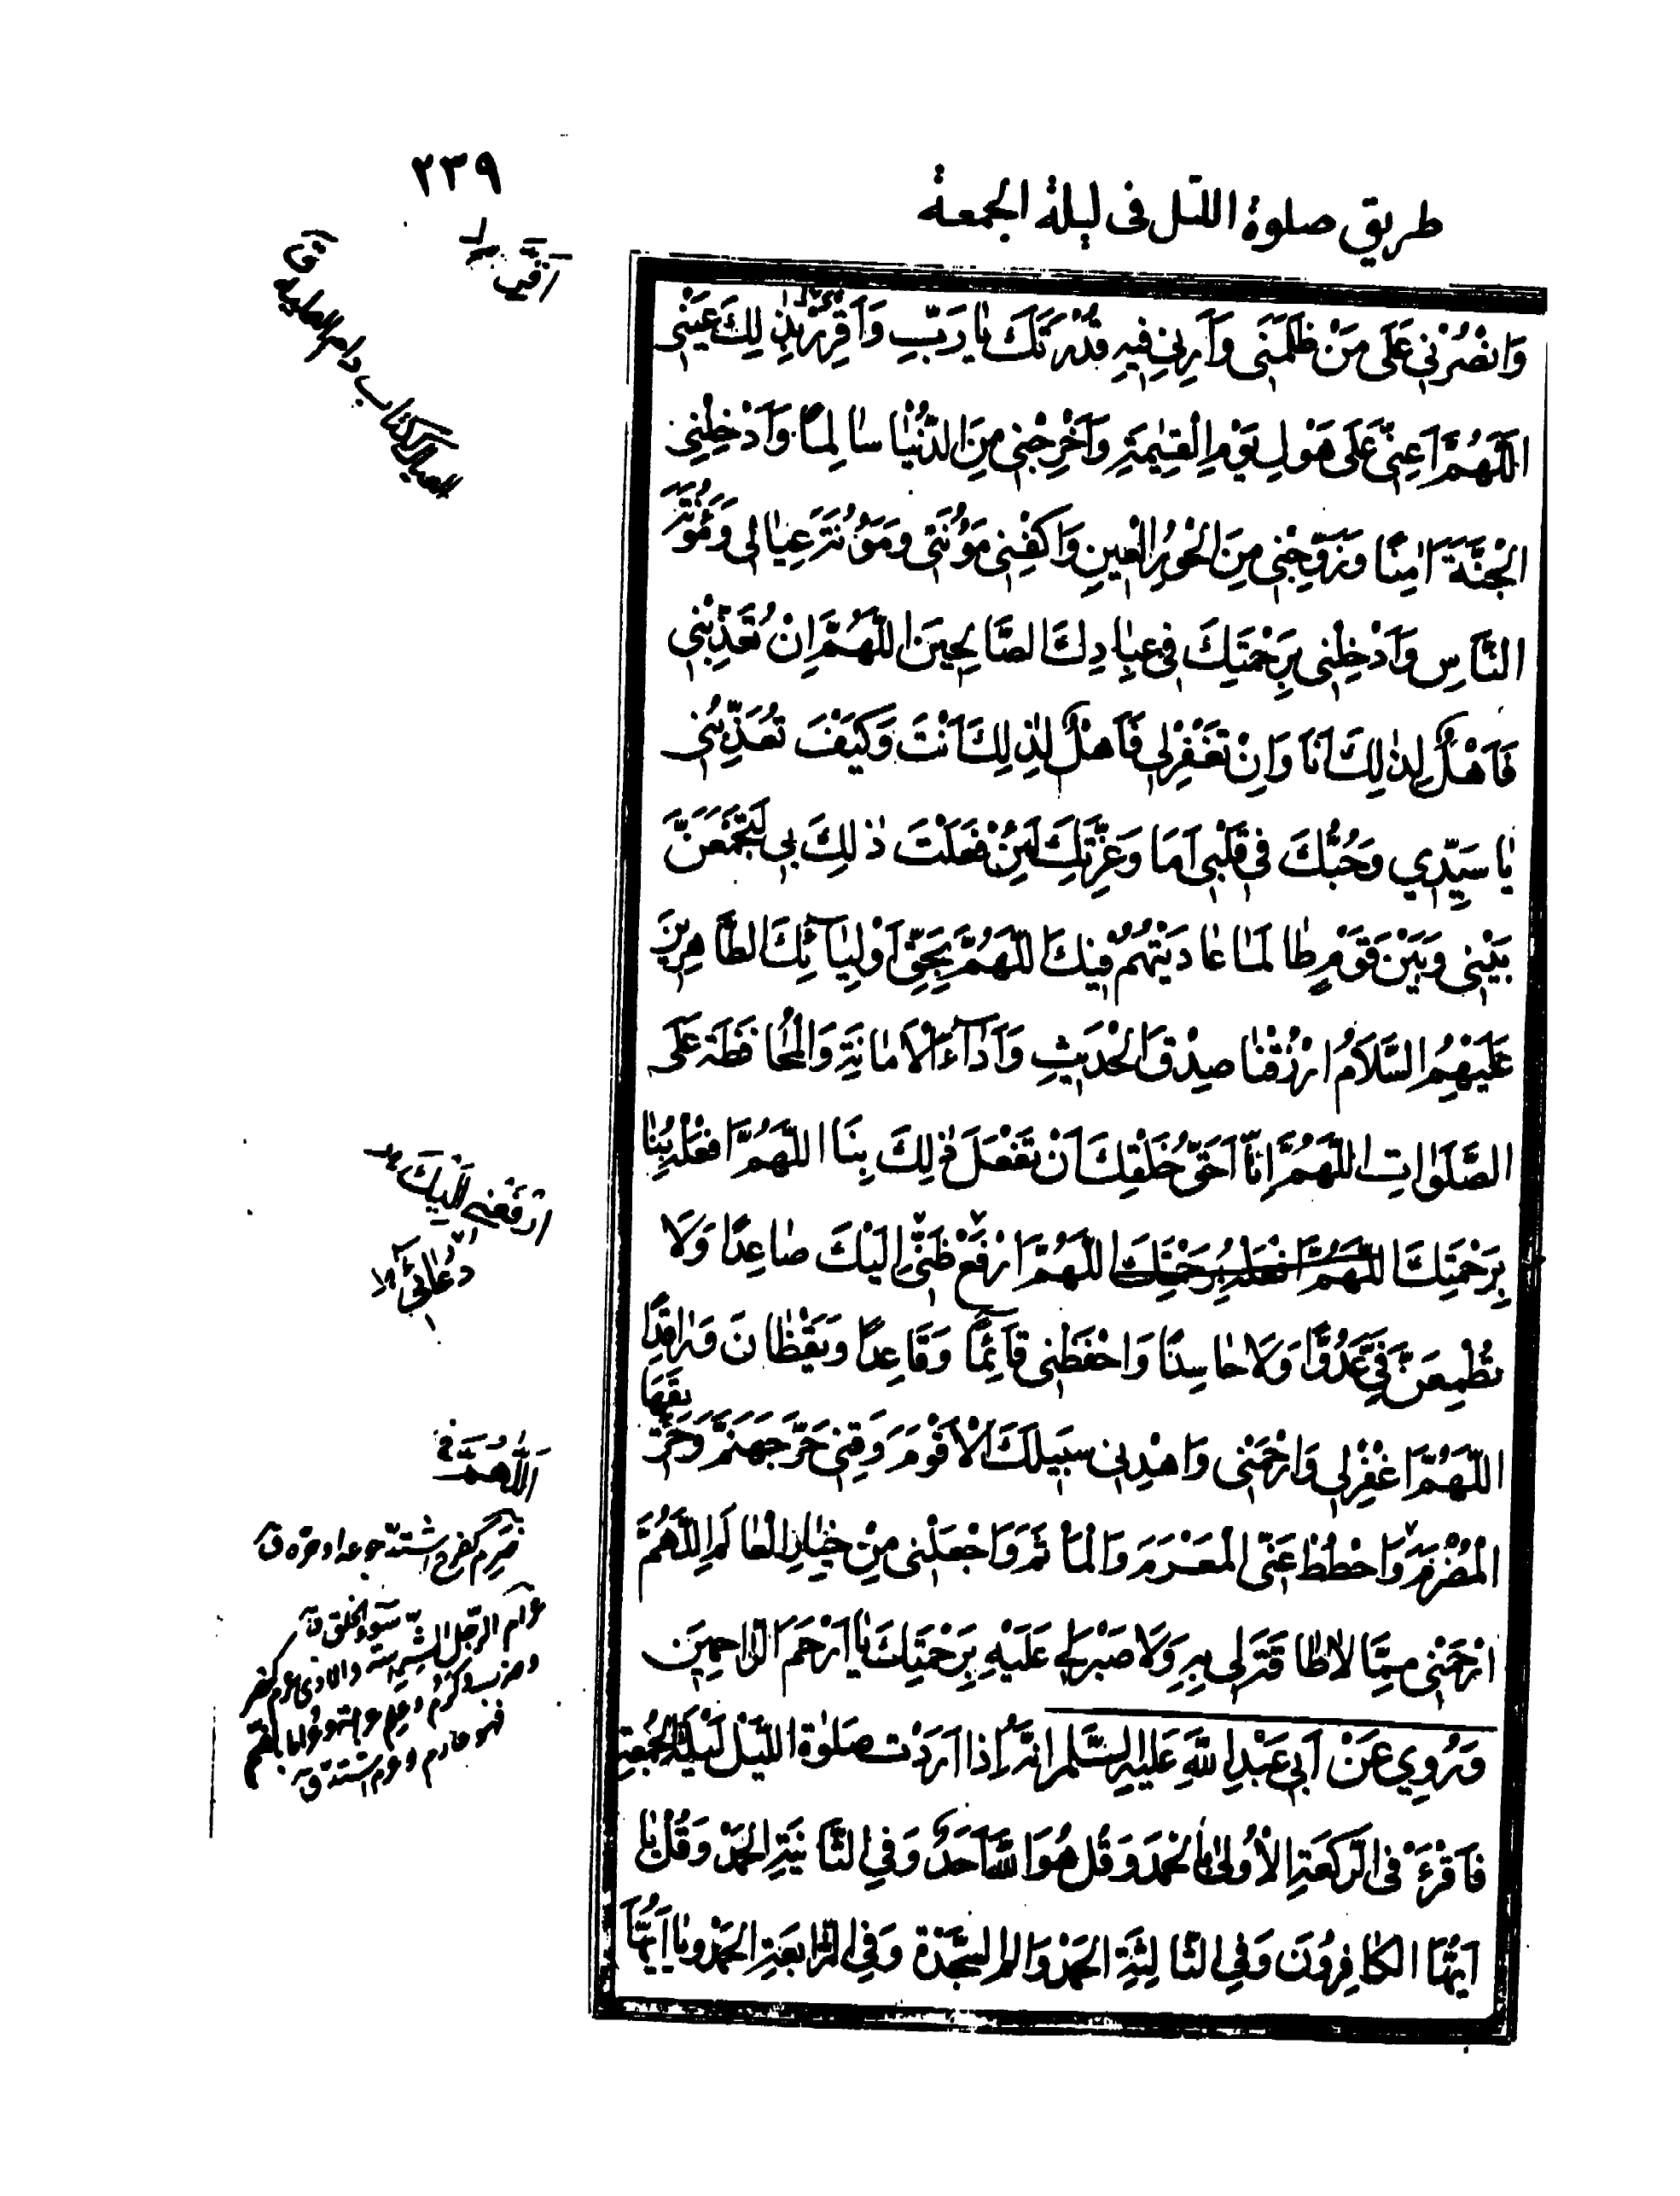 ٢٣٩
طريق صلوة الليل فى ليلة الجمعة
وَانْصُرْنِي عَلَى مَنْ ظَلَمَنِي وَاَرِنِي فِيهِ قُدْرَتَكَ يَا رَبِّ وَاَقْرِرْ بِذٰلِكَ عَيْنِي
اَللّٰهُمَّ اَعِنِّي عَلَى هَوْلِ يَوْمِ الْقِيٰمَةِ وَاَخْرِجْنِي مِنَ الدُّنْيَا سَالِمًا وَاَدْخِلْنِي
الْجَنَّةَ اٰمِنًا وَزَوِّجْنِي مِنَ الْحُورِ الْعِينِ وَاكْفِنِي مَؤُنَتِي وَمَؤُنَةَ عِيَالِي وَمَؤُنَةَ
النَّاسِ وَاَدْخِلْنِي بِرَحْمَتِكَ فِي عِبَادِكَ الصَّالِحِينَ اللّٰهُمَّ اِنْ تُعَذِّبْنِي
فَاَهْلٌ لِذٰلِكَ اَنَا وَاِنْ تَغْفِرْ لِي فَاَهْلٌ لِذٰلِكَ اَنْتَ وَكَيْفَ تُعَذِّبُنِي
يَا سَيِّدِي وَحُبُّكَ فِي قَلْبِي اَمَا وَعِزَّتِكَ لَئِنْ فَعَلْتَ ذٰلِكَ بِي لَتَجْمَعَنَّ
بَيْنِي وَبَيْنَ قَوْمٍ طَالَمَا عَادَيْتُهُمْ فِيكَ اللّٰهُمَّ بِحَقِّ اَوْلِيَآئِكَ الطَّاهِرِينَ
عَلَيْهِمُ السَّلَامُ ارْزُقْنَا صِدْقَ الْحَدِيثِ وَاَدَآءَ الْاَمَانَةِ وَالْمُحَافَظَةَ عَلَى
الصَّلَوَاتِ اللّٰهُمَّ اِنَّا اَحَقُّ خَلْقِكَ اَنْ تَفْعَلَ ذٰلِكَ بِنَا اللّٰهُمَّ افْعَلْهُ بِنَا
بِرَحْمَتِكَ اللّٰهُمَّ افْعَلْهُ بِرَحْمَتِكَ اللّٰهُمَّ ارْفَعْ ظَنِّي اِلَيْكَ صَاعِدًا وَلَا
تُطْمِعَنَّ فِيَّ عَدُوًّا وَلَا حَاسِدًا وَاحْفَظْنِي قَآئِمًا وَقَاعِدًا وَيَقْظَانَ وَرَاقِدًا
اللّٰهُمَّ اغْفِرْ لِي وَارْحَمْنِي وَاهْدِنِي سَبِيلَكَ الْاَقْوَمَ وَقِنِي حَرَّ جَهَنَّمَ وَحَرِّ
يقَهَا
الْمُضْرَمَ وَاحْطُطْ عَنِّي الْمَغْرَمَ وَالْمَأْثَمَ وَاجْعَلْنِي مِنْ خِيَارِ الْعَالَمِ اللّٰهُمَّ
ارْحَمْنِي مِمَّا لَا طَاقَةَ لِي بِهِ وَلَا صَبْرَ لِي عَلَيْهِ بِرَحْمَتِكَ يَا اَرْحَمَ الرَّاحِمِينَ
وَرُوِي عَنْ اَبِي عَبْدِ اللّٰهِ عَلَيْهِ السَّلٰمُ اَنَّهُ اِذَا اَرَدْتَ صَلٰوةَ اللَّيْلِ لَيْلَةَ الْجُمُعَةِ
فَاقْرَءْ فِي الرَّكْعَةِ الْاُولَىٰ بِالْحَمْدَ وَقُلْ هُوَ اللّٰهُ اَحَدٌ وَفِي الثَّانِيَةِ الْحَمْدَ وَقُلْ يَا
اَيُّهَا الْكَافِرُونَ وَفِي الثَّالِثَةِ الْحَمْدَ وَالم السَّجْدَةَ وَفِي الرَّابِعَةِ الْحَمْدَ وَيَا اَيُّهَا
ارفَعْني اِلَيْكَ
دُعَائِي
اَللّٰهُمَّ